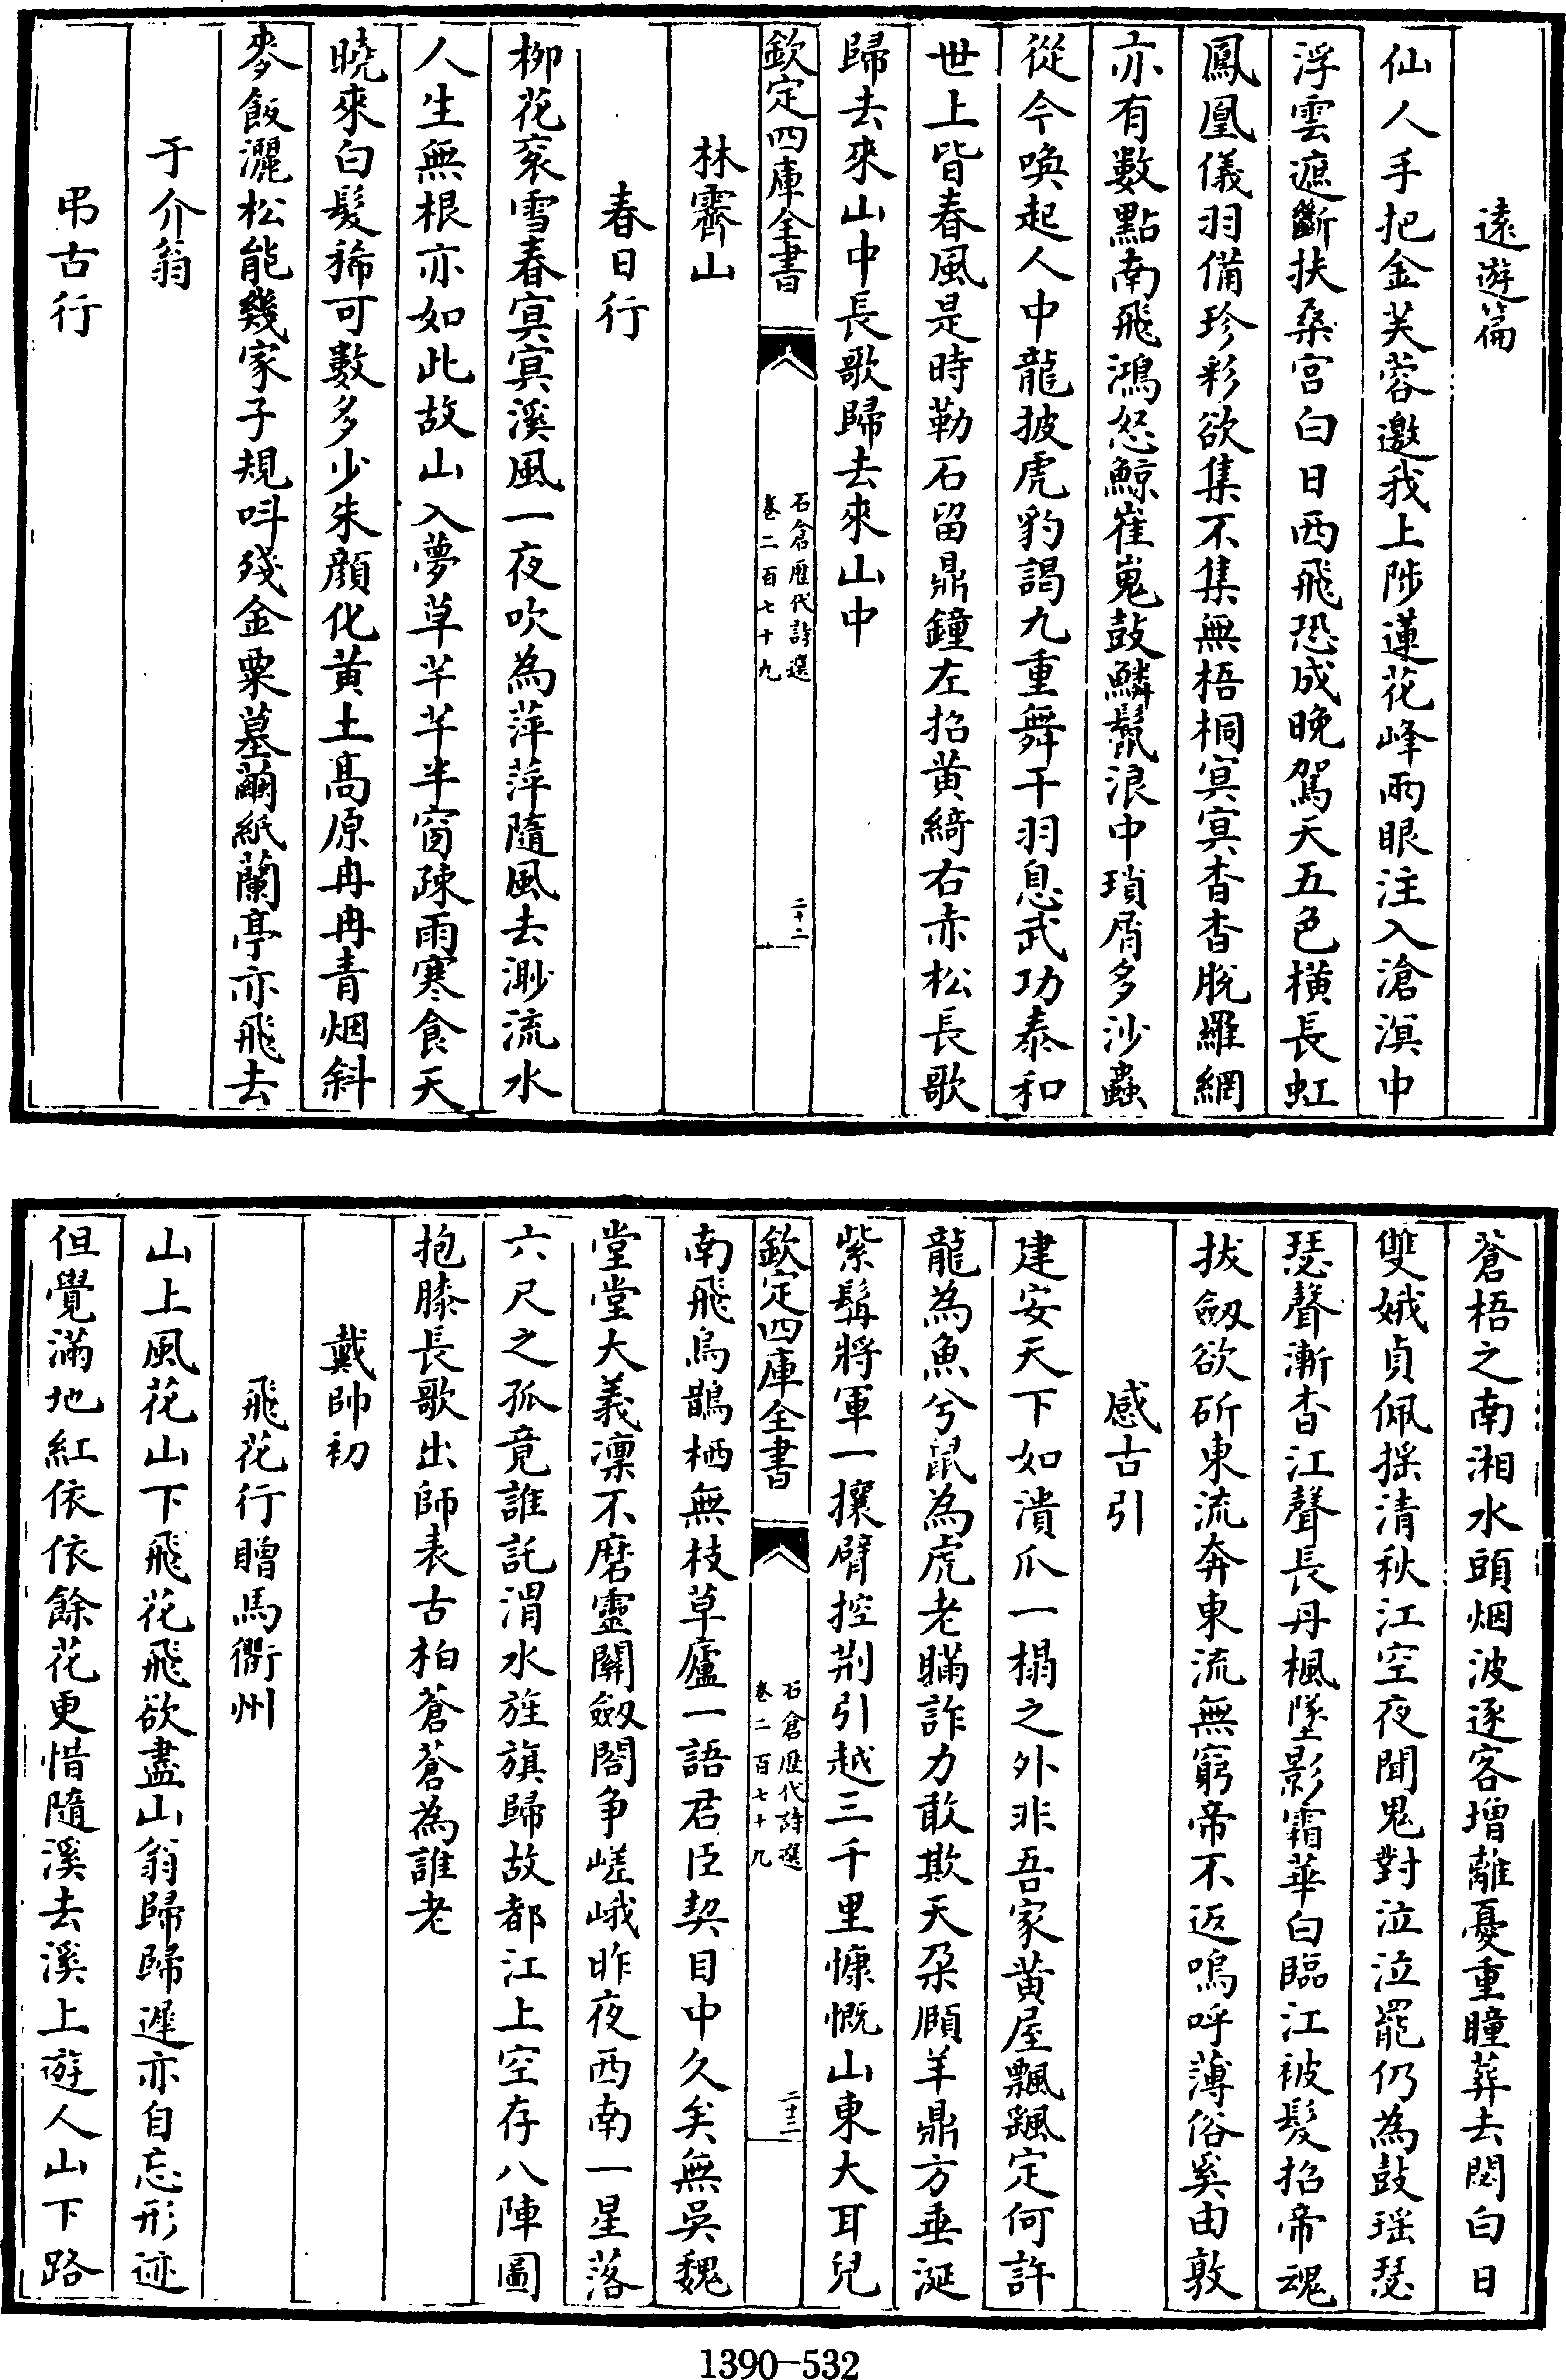 遠遊篇
仙人手把金芙蓉邀我上陟蓮花峰兩眼注入滄溟中
浮雲遮斷扶桑宫白日西飛恐成晚駕天五色橫長虹
鳳凰儀羽備珍彩欲集不集無梧桐冥冥杳杳脫羅網
亦有數點南飛鴻怒鯨崔嵬鼓鱗鬛浪中瑣屑多沙蟲
從今喚起人中龍披虎豹謁九重舞干羽息武功泰和
世上皆春風是時勒石留鼎鐘左招黄綺右赤松長歌
歸去來山中長歌歸去來山中
欽定四庫全書
石倉歷代詩選
卷二百七十九
二十二
林霽山
春日行
栁花衮雪春冥冥溪風一夜吹為萍萍隨風去渺流水
人生無根亦如此故山入夢草芊芊半窗疎雨寒食天
曉來白髮稀可數多少朱顔化黄土髙原冉冉青烟斜
麥飯灑松能幾家子規呌殘金粟墓繭紙蘭亭亦飛去
于介翁
弔古行
蒼梧之南湘水頭烟波逐客增離憂重瞳葬去閟白日
雙娥貞佩揺清秋江空夜聞鬼對泣泣罷仍為鼓瑶瑟
瑟聲漸杳江聲長丹楓墜影霜華白臨江被髮招帝魂
拔劔欲斫東流奔東流無窮帝不返嗚呼薄俗奚由敦
感古引
建安天下如潰瓜一榻之外非吾家黄屋飄飖定何許
龍為魚兮鼠為虎老瞞詐力敢欺天朶頤羊鼎方垂涎
紫髯將軍一攘臂控荆引越三千里慷慨山東大耳兒
欽定四庫全書
石倉歷代詩選
卷二百七十九
二十三
南飛烏鵲栖無枝草廬一語君臣契目中久矣無吳魏
堂堂大義凛不磨靈關劔閣争嵯峨昨夜西南一星落
六尺之孤竟誰託渭水旌旗歸故都江上空存八陣圖
抱膝長歌出師表古柏蒼蒼為誰老
戴帥初
飛花行贈馬衢州
山上風花山下飛花飛欲盡山翁歸歸遲亦自忘形迹
但覺滿地紅依依餘花更惜隨溪去溪上遊人山下路
1390—532